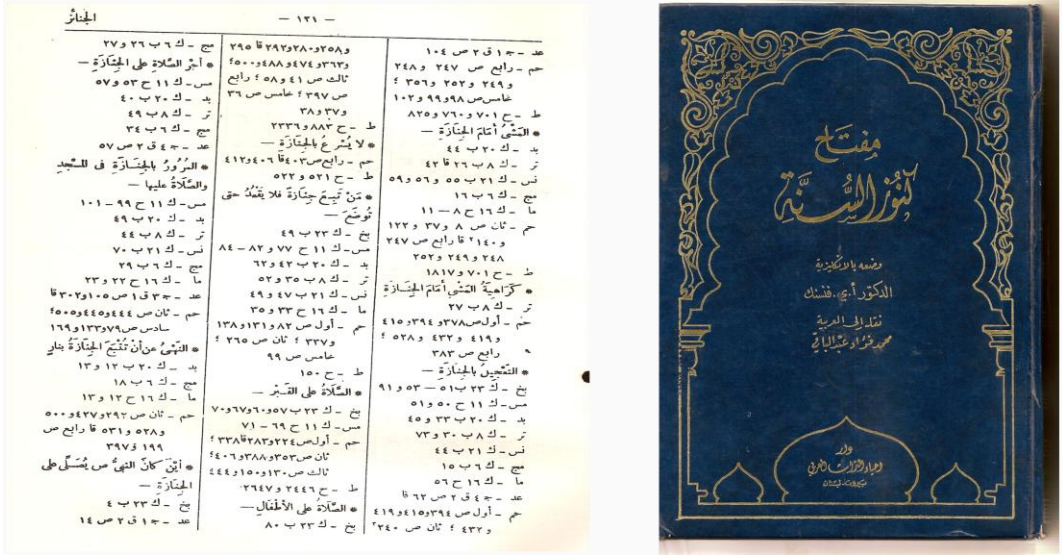 — ١٣١ —
الجنائز
عد – ج ١ ق ٢ ص ١٠٤
حم – رابع ص ٢٤٧ و ٢٤٨
و ٢٤٩ و ٢٥٢ و ٣٥٦ ؛
خامس ص ٩٨ و ٩٩ و ١٠٢
ط – ح ٧٠١ و ٧٦٠ و ٨٢٥
* المَشْىُ أَمَامَ الجِنَازَةِ —
بد – ك ٢٠ ب ٤٤
تر – ك ٨ ب ٢٦ قا ٤٢
نس – ك ٢١ ب ٥٥ و ٥٦ و ٥٩
مج – ك ٦ ب ١٦
ما – ك ١٦ ح ٨ – ١١
حم – ثان ص ٨ و ٣٧ و ١٢٢
و ١٤٠ ٢ قا رابع ص ٢٤٧
٢٤٨ و ٢٤٩ و ٢٥٢
ط – ح ٧٠١ و ١٨١٧
* كَرَاهِيَةُ المَشْىِ أَمَامَ الجِنَازَةِ
تر – ك ٨ ب ٢٧
حم – أول ص ٣٧٨ و ٣٩٤ و ٤١٥
و ٤١٩ و ٤٣٢ و ٥٢٨ ؛
رابع ص ٣٨٣
* التَّعْجِيلُ بِالجِنَازَةِ —
بخ – ك ٢٣ ب ٥١ – ٥٣ و ٩١
مس – ك ١١ ح ٥٠ و ٥١
بد – ك ٢٠ ب ٣٣ و ٤٥
تر – ك ٨ ب ٣٠ و ٧٣
نس – ك ٢١ ب ٤٤
مج – ك ٦ ب ١٥
ما – ك ١٦ ح ٥٦
عد – ج ٤ ق ٢ ص ٦٢ قا
حم – أول ص ٣٩٤ و ٤١٥ و ٤١٩
و ٤٣٢ ؛ ثان ص ٢٤٠ ٢
و ٢٥٨ و ٢٨٠ و ٢٩٢ قا ٢٩٥
و ٣٦٣ و ٤٧٤ و ٤٨٨ و ٥٠٠ ؛
ثالث ص ٤١ و ٥٨ ؛ رابع
ص ٣٩٧ ؛ خامس ص ٣٦
و ٣٧ و ٣٨
ط – ح ٨٨٣ و ٢٣٣٦
* لا يُسْرِعُ بِالجِنَازَةِ —
حم – رابع ص ٤٠٣ قا ٤٠٦ و ٤١٢
ط – ح ٥٢١ و ٥٢٢
* مَنْ تَبِعَ جِنَازَةً فلا يَقْعُدُ حتى
تُوضَعَ —
بخ – ك ٢٣ ب ٤٩
مس – ك ١١ ح ٧٧ و ٨٢ – ٨٤
بد – ك ٢٠ ب ٤٢ و ٦٢
تر – ك ٨ ب ٣٥ و ٥٢
نس – ك ٢١ ب ٤٧ و ٤٩
ما – ك ١٦ ح ٣٣ و ٣٥
حم – أول ص ٨٢ و ١٣١ و ١٣٨
و ٣٣٧ ؛ ثان ص ٢٦٥ ؛
خامس ص ٩٩
ط – ح ١٥٠
* الصَّلاةُ على القَبْرِ —
بخ – ك ٢٣ ب ٥٧ و ٦٠ و ٦٧ و ٧٠
مس – ك ١١ ح ٦٩ – ٧١
حم – أول ص ٢٢٤ و ٢٨٣ قا ٣٣٨ ؛
ثان ص ٣٥٣ و ٣٨٨ و ٤٠٦ ؛
ثالث ص ١٣٠ و ١٥٠ و ٤٤٤
ط – ح ٢٤٤٦ و ٢٦٤٧
* الصَّلاةُ على الأَطْفَالِ —
بخ – ك ٢٣ ب ٨٠
مج – ك ٦ ب ٢٦ و ٢٧
* أَجْرُ الصَّلاةِ على الجِنَازَةِ —
مس – ك ١١ ح ٥٣ و ٥٧
بد – ك ٢٠ ب ٤٠
تر – ك ٨ ب ٤٩
مج – ك ٦ ب ٣٤
عد – ج ٤ ق ٢ ص ٥٧
* المُرُورُ بِالجِنَازَةِ فى المَسْجِدِ
والصَّلاةُ عليها —
مس – ك ١١ ح ٩٩ – ١٠١
بد – ك ٢٠ ب ٤٩
تر – ك ٨ ب ٤٤
نس – ك ٢١ ب ٧٠
مج – ك ٦ ب ٢٩
ما – ك ١٦ ح ٢٢ و ٢٣
عد – ج ٣ ق ١ ص ١٠٥ و ٣٠٢ قا
حم – ثان ص ٤٤٤ و ٤٤٥ و ٥٠٥ ؛
سادس ص ٧٩ و ١٣٣ و ١٦٩
* النهىُ عن أنْ تُتْبَعَ الجِنَازَةُ بنارٍ
بد – ك ٢٠ ب ١٢ و ١٣
مج – ك ٦ ب ١٨
ما – ك ١٦ ح ١٢ و ١٣
حم – ثان ص ٢٩٢ و ٤٢٧ و ٥٠٠
و ٥٢٨ و ٥٣١ قا رابع ص
١٩٩ و ٣٩٧
* أيْنَ كانَ النبىُّ ص يُصَلِّى على
الجِنَازَةِ —
بخ – ك ٢٣ ب ٤
عد – ج ١ ق ٢ ص ١٤
مفتاح
كنوز السنة
وضعه بالانكليزية
الدكتور أ.ي. فنسنك
نقله إلى العربية
محمد فؤاد عبد الباقي
دار
احياء التراث العربي
بيروت - لبنان